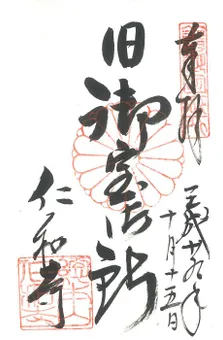 奉拝
平成廿九年
十月十五日
旧御室御所
仁和寺